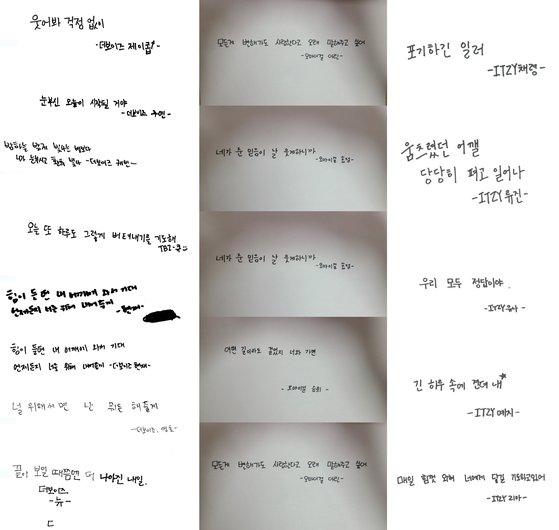 웃어봐 걱정 없이
-더보이즈 제이콥-
눈부신 오늘이 시작될 거야
-더보이즈 주연-
밤하늘 밝게 빛나는 별보다
-더보이즈 케빈-
오늘 또 하루도 그렇게 버텨내기를 기도해
TBZ-큐-
힘이 들면 내 어깨에 와서 기대
언제든지 너를 위해 내어줄게 -현재-
힘이 들면 내 어깨에 와서 기대
언제든지 널 위해 내어줄게 -더보이즈 현재-
널 위해서면 난 뭐든 해줄게
-더보이즈, 영훈-
끝이 보일 때쯤엔 더 나아진 내일.
더보이즈
-뉴-
모든게 변해가도 사랑한다고 오래 말해주고 싶어
-오마이걸 아린-
네가 준 믿음이 날 웃게하니까
-오마이걸 효정-
네가 준 믿음이 날 웃게하니까
-오마이걸 효정-
어떤 길이라도 괜찮지 너와 가면
-오마이걸 승희-
모든게 변해가도 사랑한다고 오래 말해주고 싶어
-오마이걸 아린-
포기하긴 일러
-ITZY채령-
움츠렸던 어깰
당당히 펴고 일어나
-ITZY류진-
우리 모두 정답이야.
-ITZY유나-
긴 하루 속에 견뎌 내
-ITZY예지-
매일 힘껏 외쳐 너에게 닿길 기도하고있어
-ITZY리아-